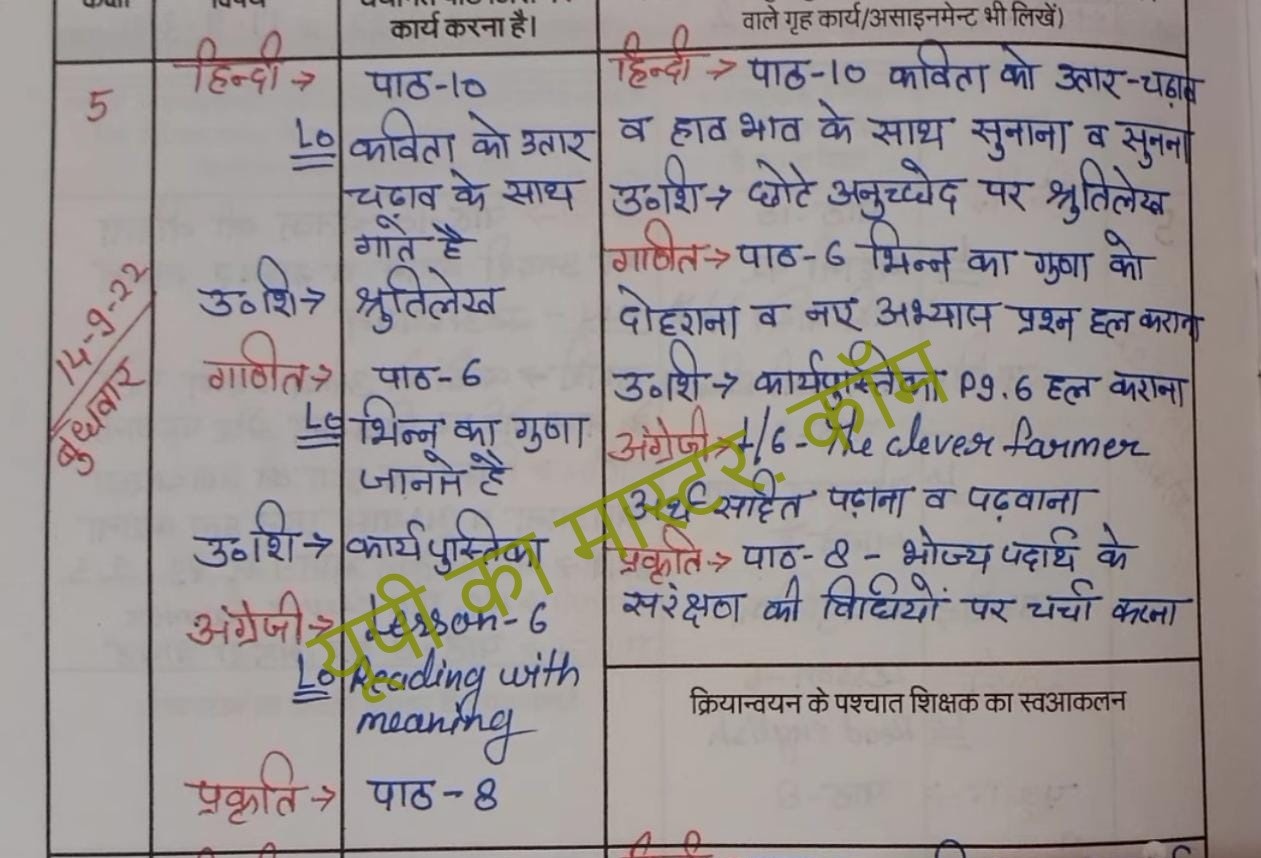 कक्षा
विषय
कार्य करना है।
वाले गृह कार्य/असाइनमेन्ट भी लिखें)
5
14-9-22
बुधवार
हिन्दी → पाठ-10
Lo कविता को उतार
चढ़ाव के साथ
गाते है
उ०शि→ श्रुतिलेख
गणित→ पाठ-6
Lo भिन्न का गुणा
जानते है
उ०शि→ कार्यपुस्तिका
अंग्रेजी→ Lesson-6
Lo Reading with
meaning
प्रकृति→ पाठ-8
हिन्दी → पाठ-10 कविता को उतार-चढ़ाव
व हाव भाव के साथ सुनाना व सुनना
उ०शि→ छोटे अनुच्छेद पर श्रुतिलेख
गणित→ पाठ-6 भिन्न का गुणा को
दोहराना व नए अभ्यास प्रश्न हल कराना
उ०शि→ कार्यपुस्तिका Pg.6 हल कराना
अंग्रेजी→ L/6-The clever farmer
अर्थ सहित पढ़ाना व पढ़वाना
प्रकृति→ पाठ-8-भोज्य पदार्थ के
संरक्षण की विधियों पर चर्चा करना
क्रियान्वयन के पश्चात शिक्षक का स्वआकलन
यूपी का मास्टर. कॉम